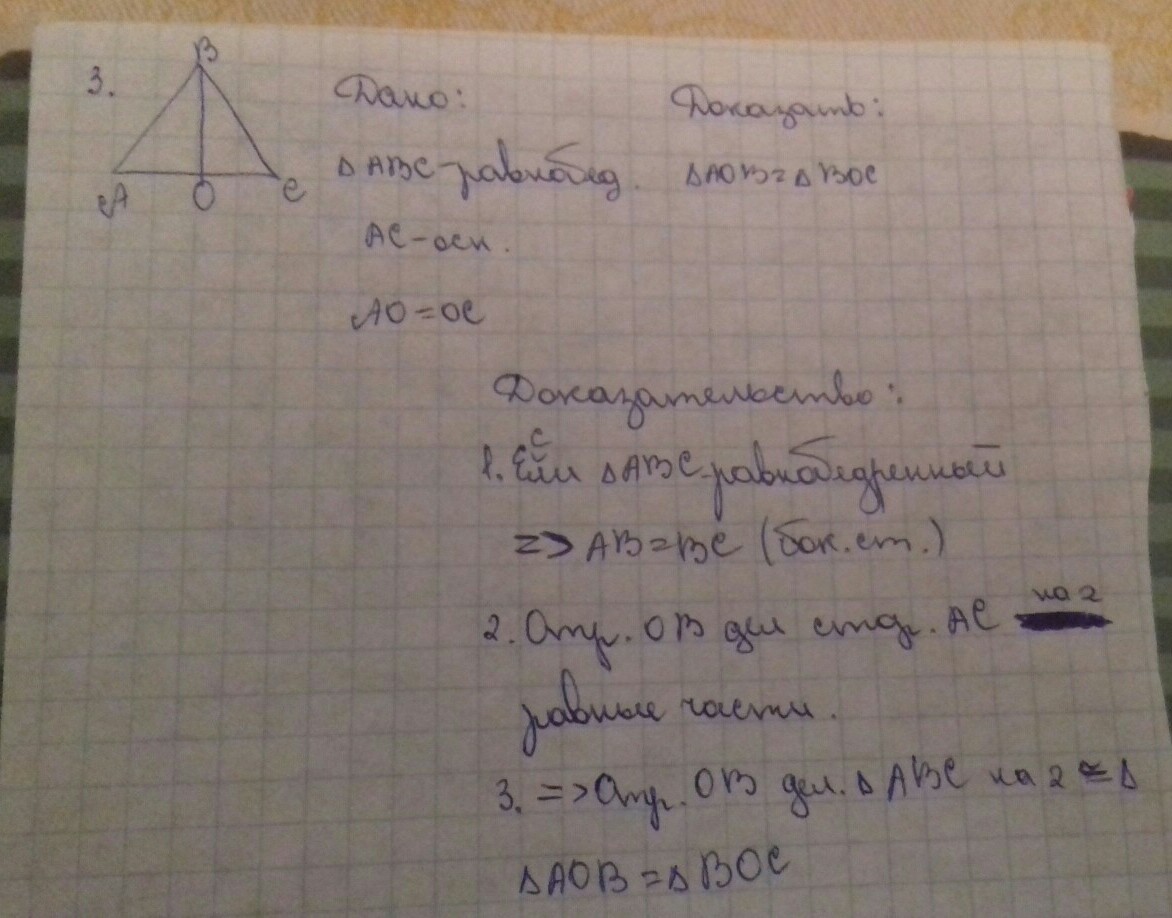 3.
B
A
O
C
Дано:
Δ ABC-равнобед.
AC-осн.
AO=OC
Доказать:
ΔAOB=ΔBOC
Доказательство:
1. Если ΔABC-равнобедренный
=> AB=BC (бок.ст.)
2. Отр. OB дел стор. AC на 2
равные части.
3. =>Отр. OB дел. Δ ABC на 2 = Δ
ΔAOB=ΔBOC